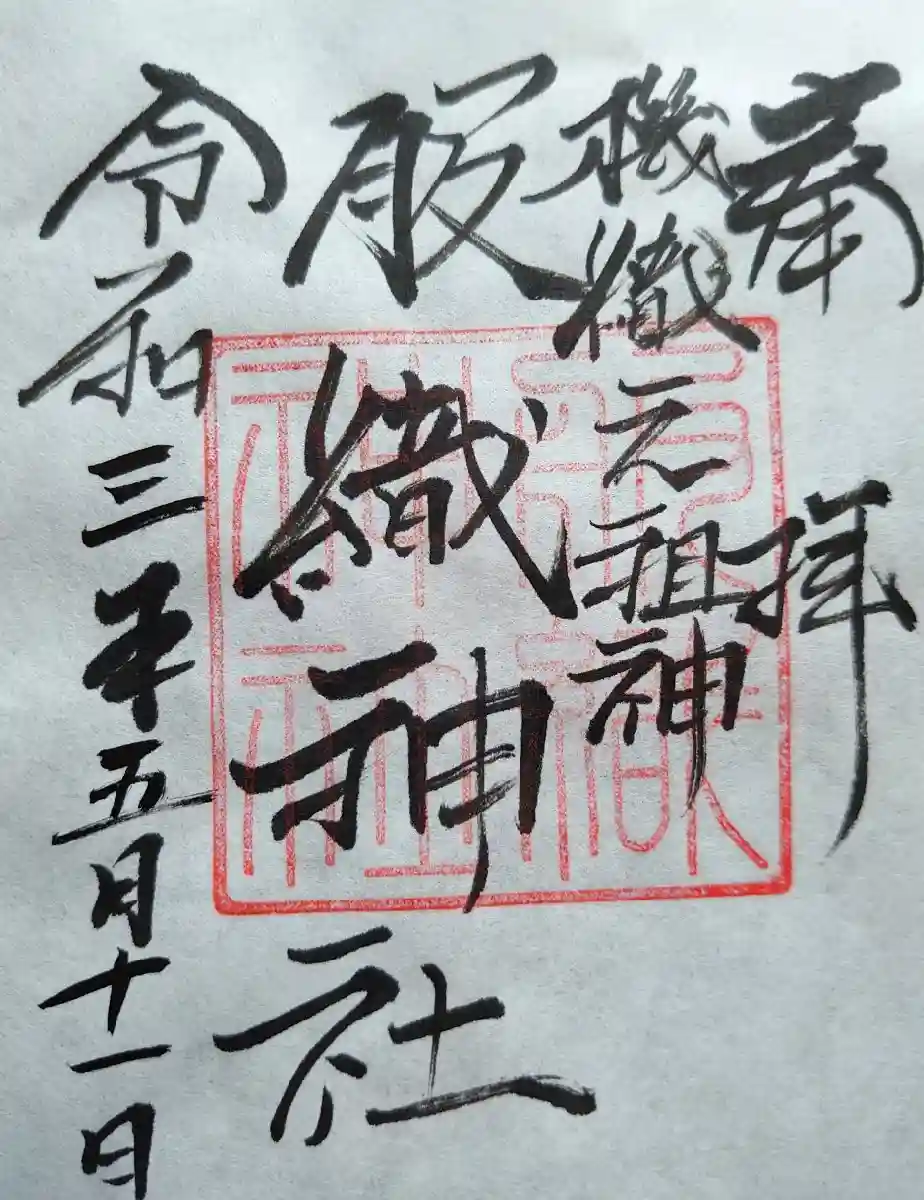 奉拝
機織元祖神
服織神社
令和三年五月十一日
服織神社